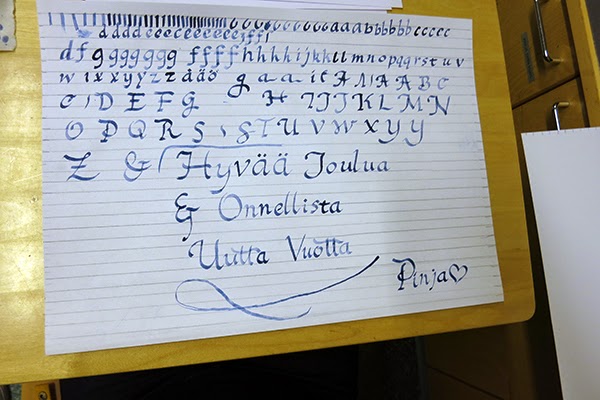 ddddceceeeeeeeiffl
dfggggggg ffffhhhhijkkllmnopqrstuv
wixxyyzzååö gaaitAAAABC
C,DEFG H IJJKLMN
OPQRS,STUVWXYY
Z & Hyvää Joulua
& Onnellista
Uutta Vuotta
Pinja♡